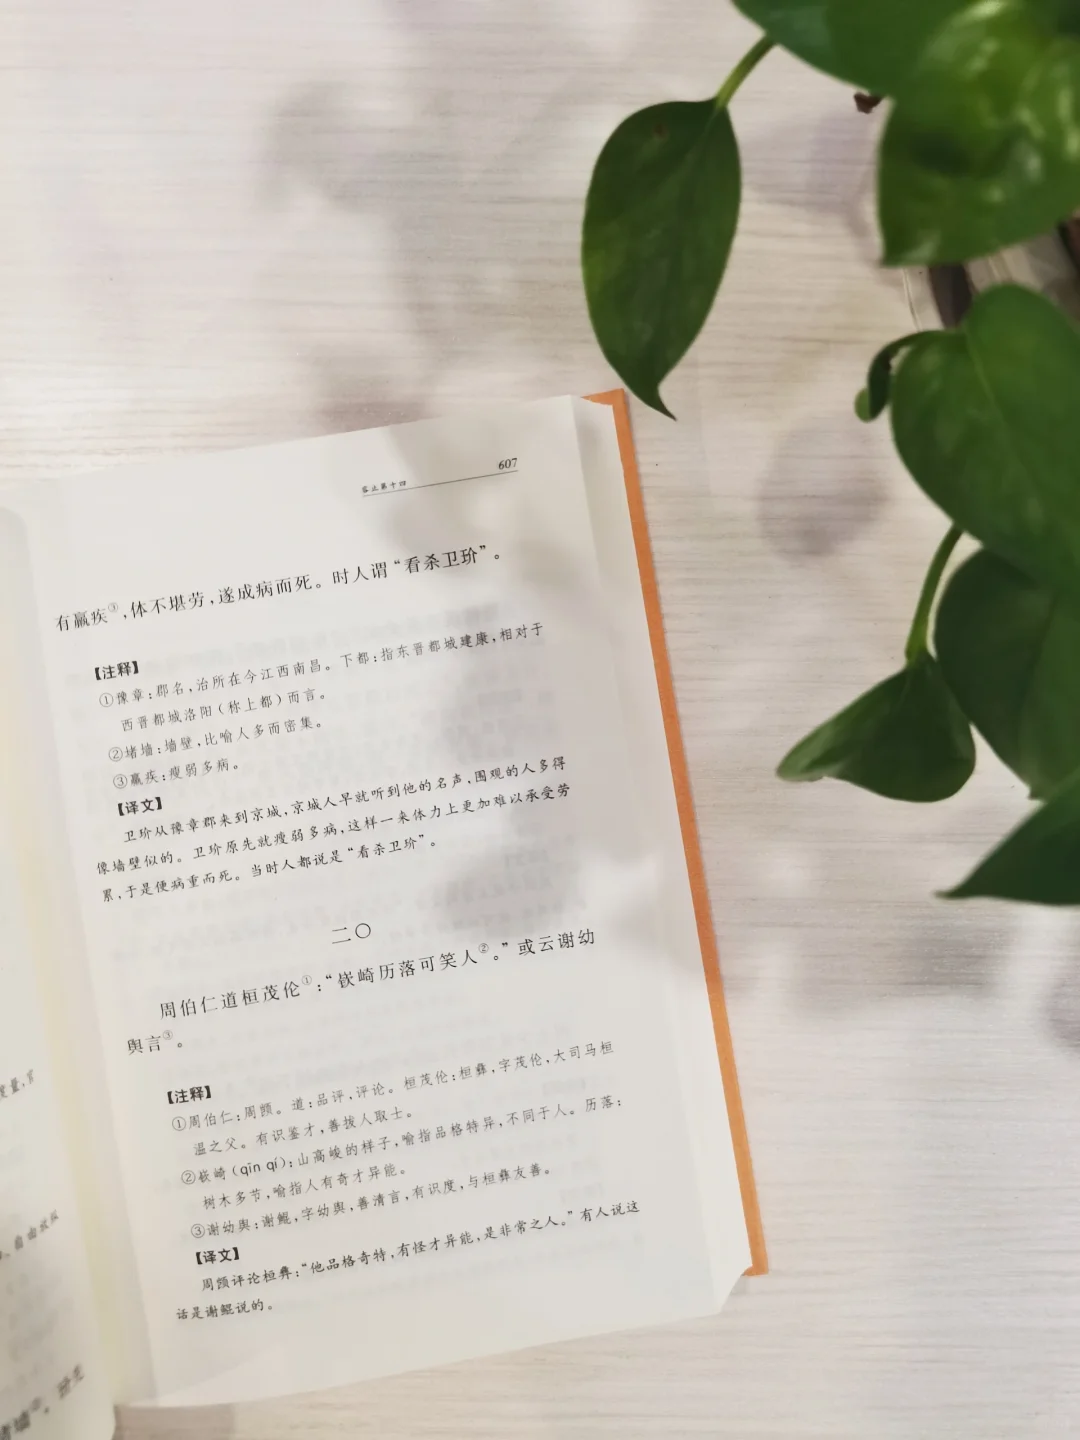 度量,官
、自由放纵
堵墙②。玠先
容止第十四
607
有羸疾③,体不堪劳,遂成病而死。时人谓“看杀卫玠”。
【注释】
①豫章:郡名,治所在今江西南昌。下都:指东晋都城建康,相对于
西晋都城洛阳(称上都)而言。
②堵墙:墙壁,比喻人多而密集。
③羸疾:瘦弱多病。
【译文】
卫玠从豫章郡来到京城,京城人早就听到他的名声,围观的人多得
像墙壁似的。卫玠原先就瘦弱多病,这样一来体力上更加难以承受劳
累,于是便病重而死。当时人都说是“看杀卫玠”。
二〇
周伯仁道桓茂伦①:“嵚崎历落可笑人②。”或云谢幼
舆言③。
【注释】
①周伯仁:周顗。道:品评,评论。桓茂伦:桓彝,字茂伦,大司马桓
温之父。有识鉴才,善拔人取士。
②嵚崎(qīn qí):山高峻的样子,喻指品格特异,不同于人。历落:
树木多节,喻指人有奇才异能。
③谢幼舆:谢鲲,字幼舆,善清言,有识度,与桓彝友善。
【译文】
周顗评论桓彝:“他品格奇特,有怪才异能,是非常之人。”有人说这
话是谢鲲说的。